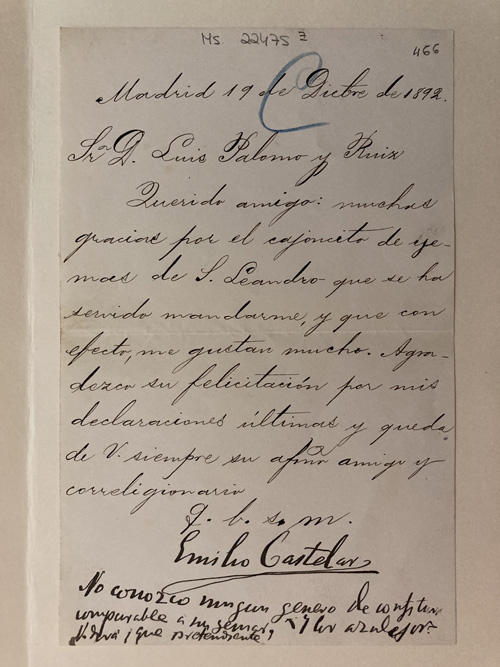 Ms. 22475
466
Madrid 19 de Dicbre de 1892.
Sr. D. Luis Palomo y Ruiz
Querido amigo: muchas
gracias por el cajoncito de ye-
mas de S. Leandro que se ha
servido mandarme, y que con
efecto, me gustan mucho. Agra-
dezco su felicitación por mis
declaraciones últimas y queda
de V. siempre su afmo amigo y
correligionario
q. b. s. m.
Emilio Castelar
No conozco ningun genero de
comparable a
¡que